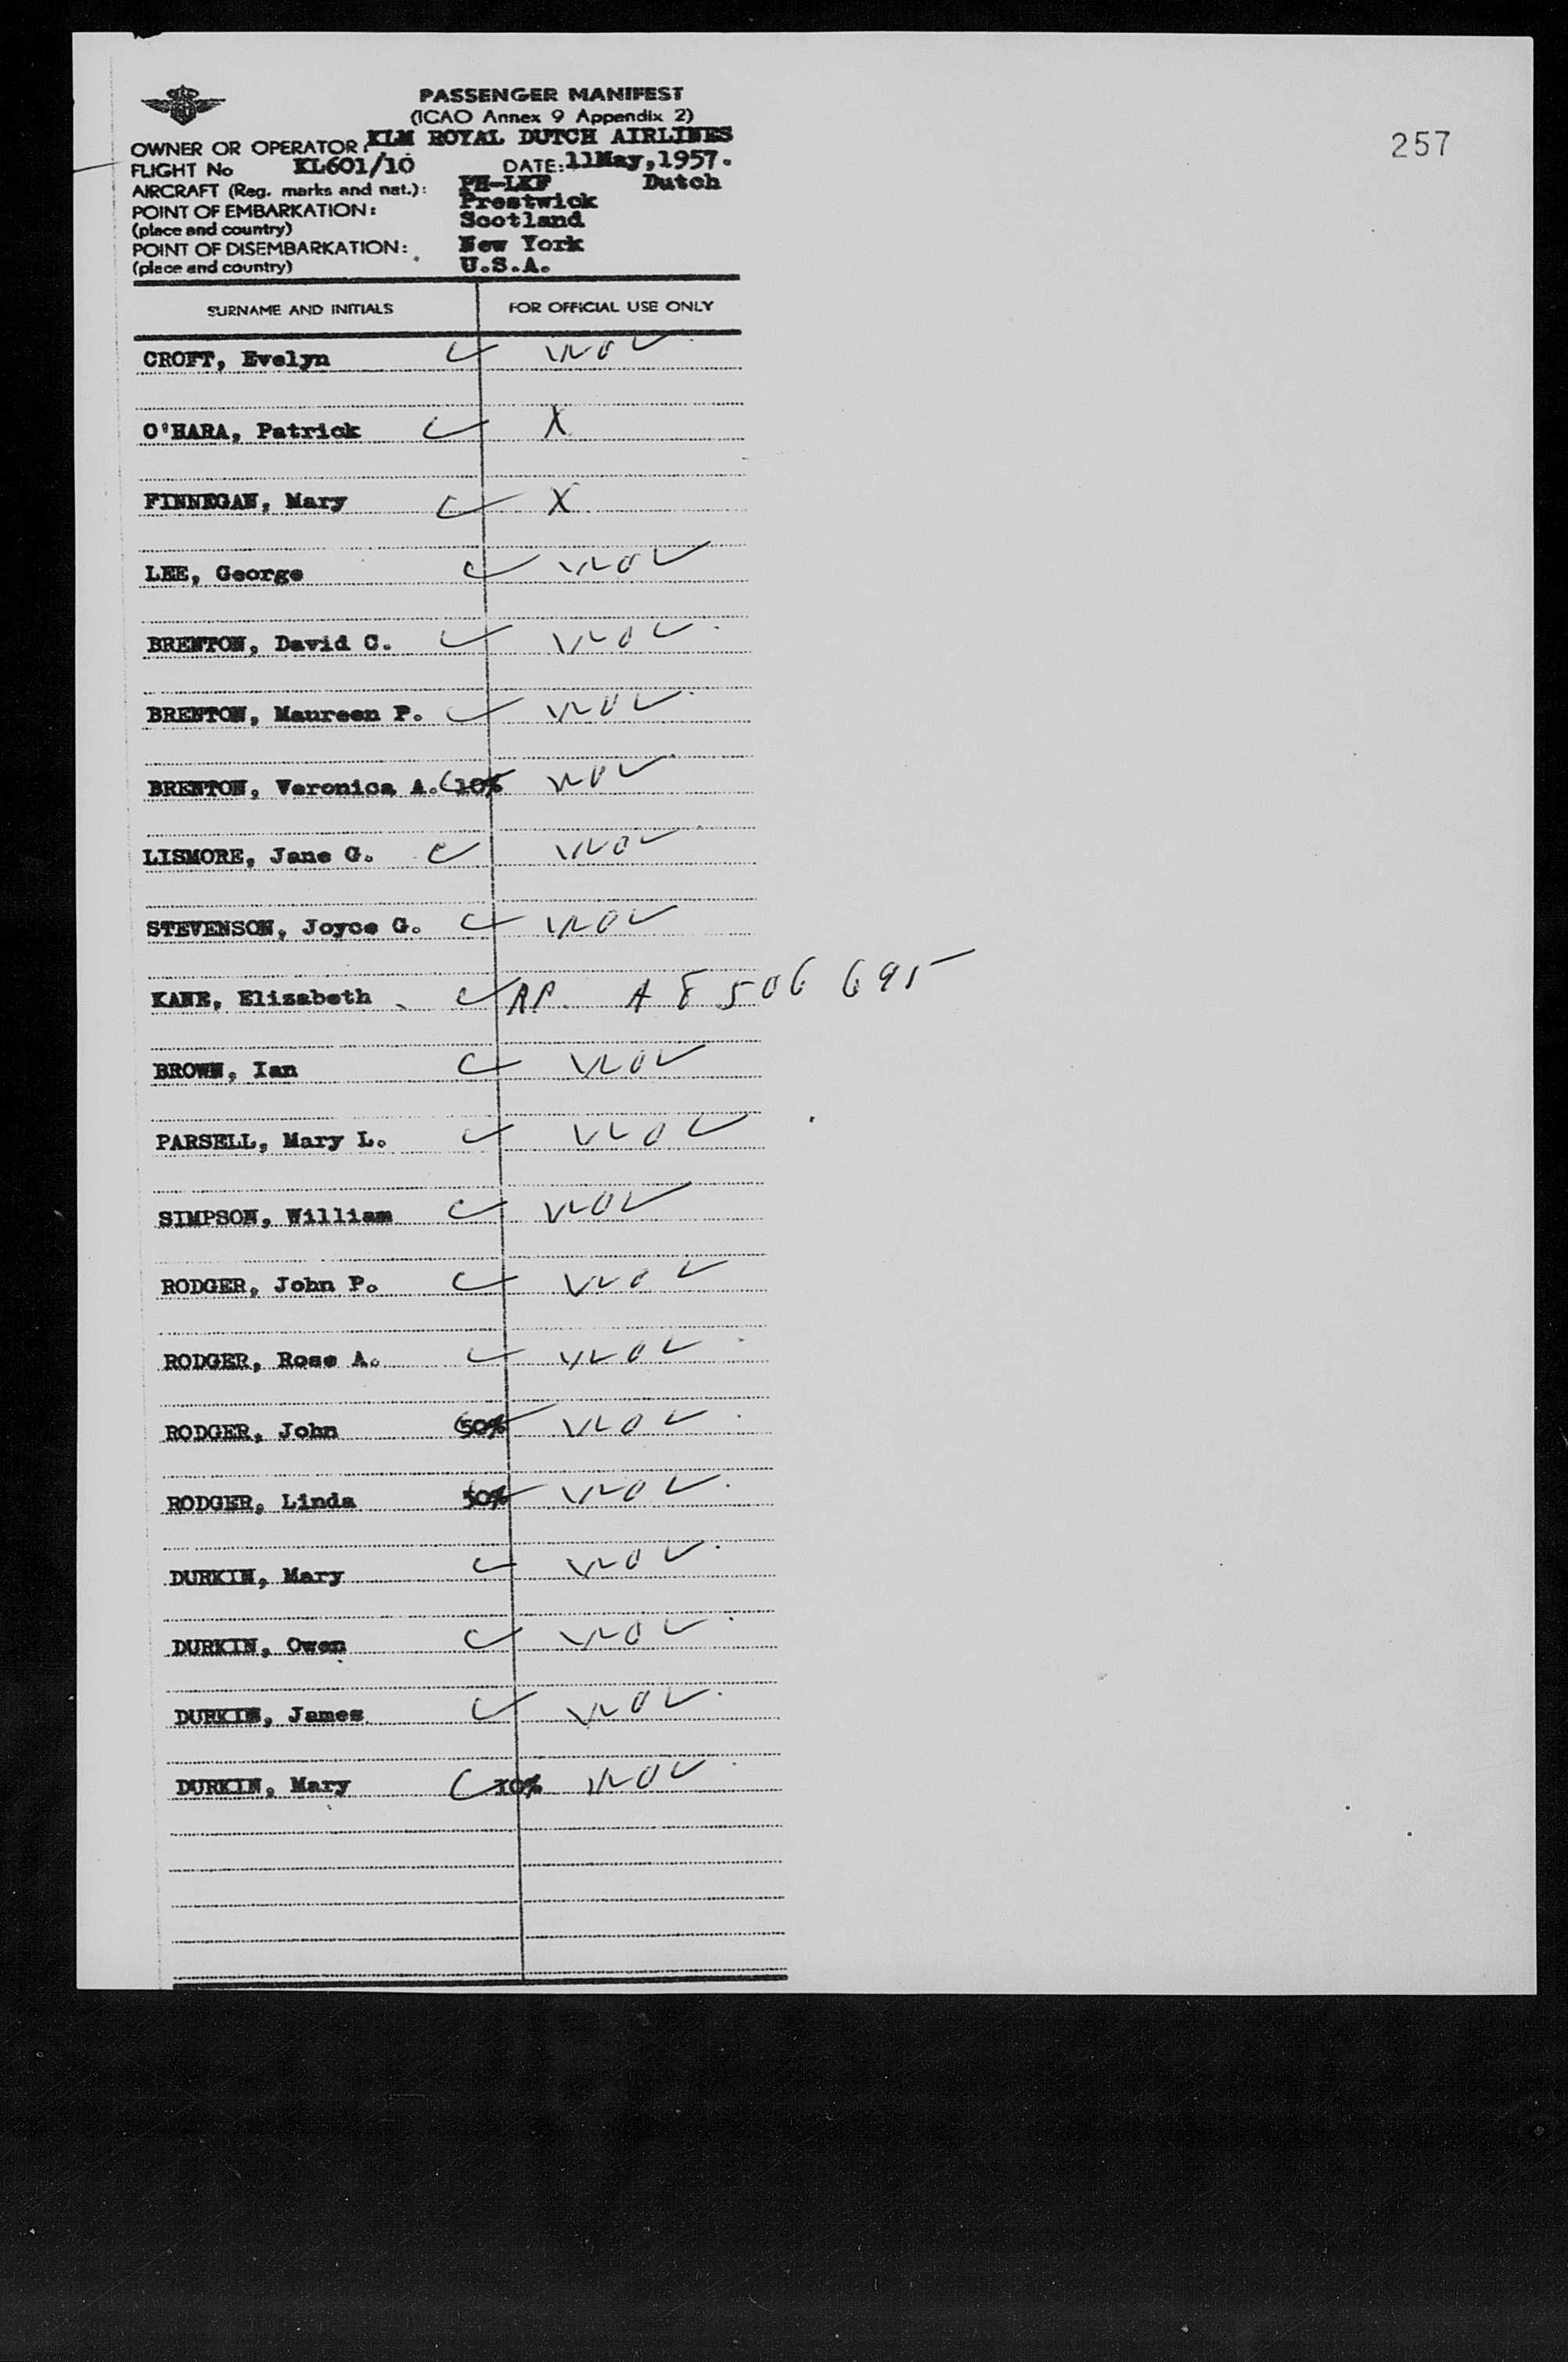 257
PASSENGER MANIFEST
(ICAO Annex 9 Appendix 2)
OWNER OR OPERATOR: KLM ROYAL DUTCH AIRLINES
FLIGHT No KL601/10 DATE: 11May, 1957.
AIRCRAFT (Reg. marks and nat.): PH-LKF Dutch
POINT OF EMBARKATION: Prestwick
(place and country) Scotland
POINT OF DISEMBARKATION: New York
(place and country) U.S.A.
SURNAME AND INITIALS FOR OFFICIAL USE ONLY
CROFT, Evelyn
O'HARA, Patrick X
FINNEGAN, Mary X
LEE, George
BRENTON, David C.
BRENTON, Maureen P.
BRENTON, Veronica A. 10%
LISMORE, Jane G.
STEVENSON, Joyce G.
KANE, Elizabeth A8 506 695
BROWN, Ian
PARSELL, Mary L.
SIMPSON, William
RODGER, John P.
RODGER, Rose A.
RODGER, John 50%
RODGER, Linda 50%
DURKIN, Mary
DURKIN, Owen
DURKIN, James
DURKIN, Mary 10%